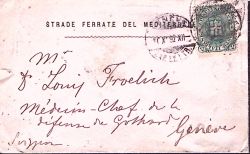 STRADE FERRATE DEL MEDITERR
Mr
Dr Louis Froelich
Médecin-Chef de la
Défense du Gothard
Genève